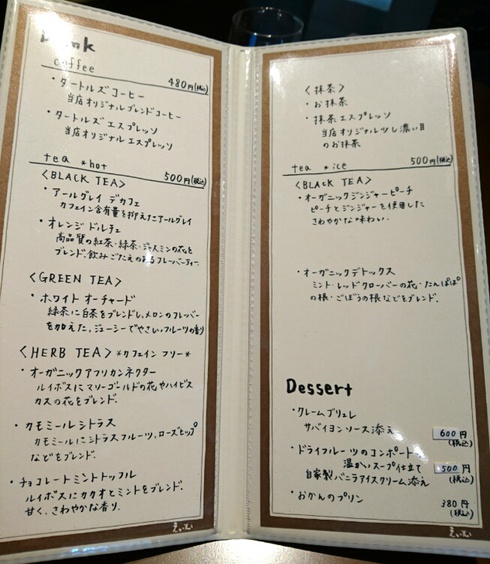 Drink
coffee 480円(税込)
・タートルズコーヒー
当店オリジナルブレンドコーヒー
・タートルズ エスプレッソ
当店オリジナル エスプレッソ
tea *hot 500円(税込)
〈BLACK TEA〉
・アールグレイ デカフェ
カフェイン含有量を抑えたアールグレイ
・オレンジ ドルチェ
高品質の紅茶・緑茶・ジャスミンの花を
ブレンド。飲みごたえのあるフレーバーティー。
〈GREEN TEA〉
・ホワイト オーチャード
緑茶に白茶をブレンドし、メロンのフレッバー
を加えた、ジューシーでやさしいフルーツの香り
〈HERB TEA〉*カフェイン フリー*
・オーガニックアフリカンネクター
ルイボスにマリーゴールドの花やハイビス
カスの花をブレンド。
・カモミールシトラス
カモミールにシトラスフルーツ、ローズヒップ
などをブレンド。
・チョコレートミントトゥルフル
ルイボスにカカオとミントをブレンド。
甘く、さわやかな香り。
〈抹茶〉
・お抹茶
・抹茶エスプレッソ
当店オリジナル少し濃い目
のお抹茶
tea *ice 500円(税込)
〈BLACK TEA〉
・オーガニックジンジャーピーチ
ピーチとジンジャーを使用した
さわやかな味わい。
・オーガニックデトックス
ミント・レッドクローバーの花・たんぽぽ
の根・ごぼうの根などをブレンド。
Dessert
・クレームブリュレ
サバイヨンソース添え 600円(税込)
・ドライフルーツのコンポート
温かいスープ仕立て
自家製バニラアイスクリーム添え 500円(税込)
・おかんのプリン 380円(税込)